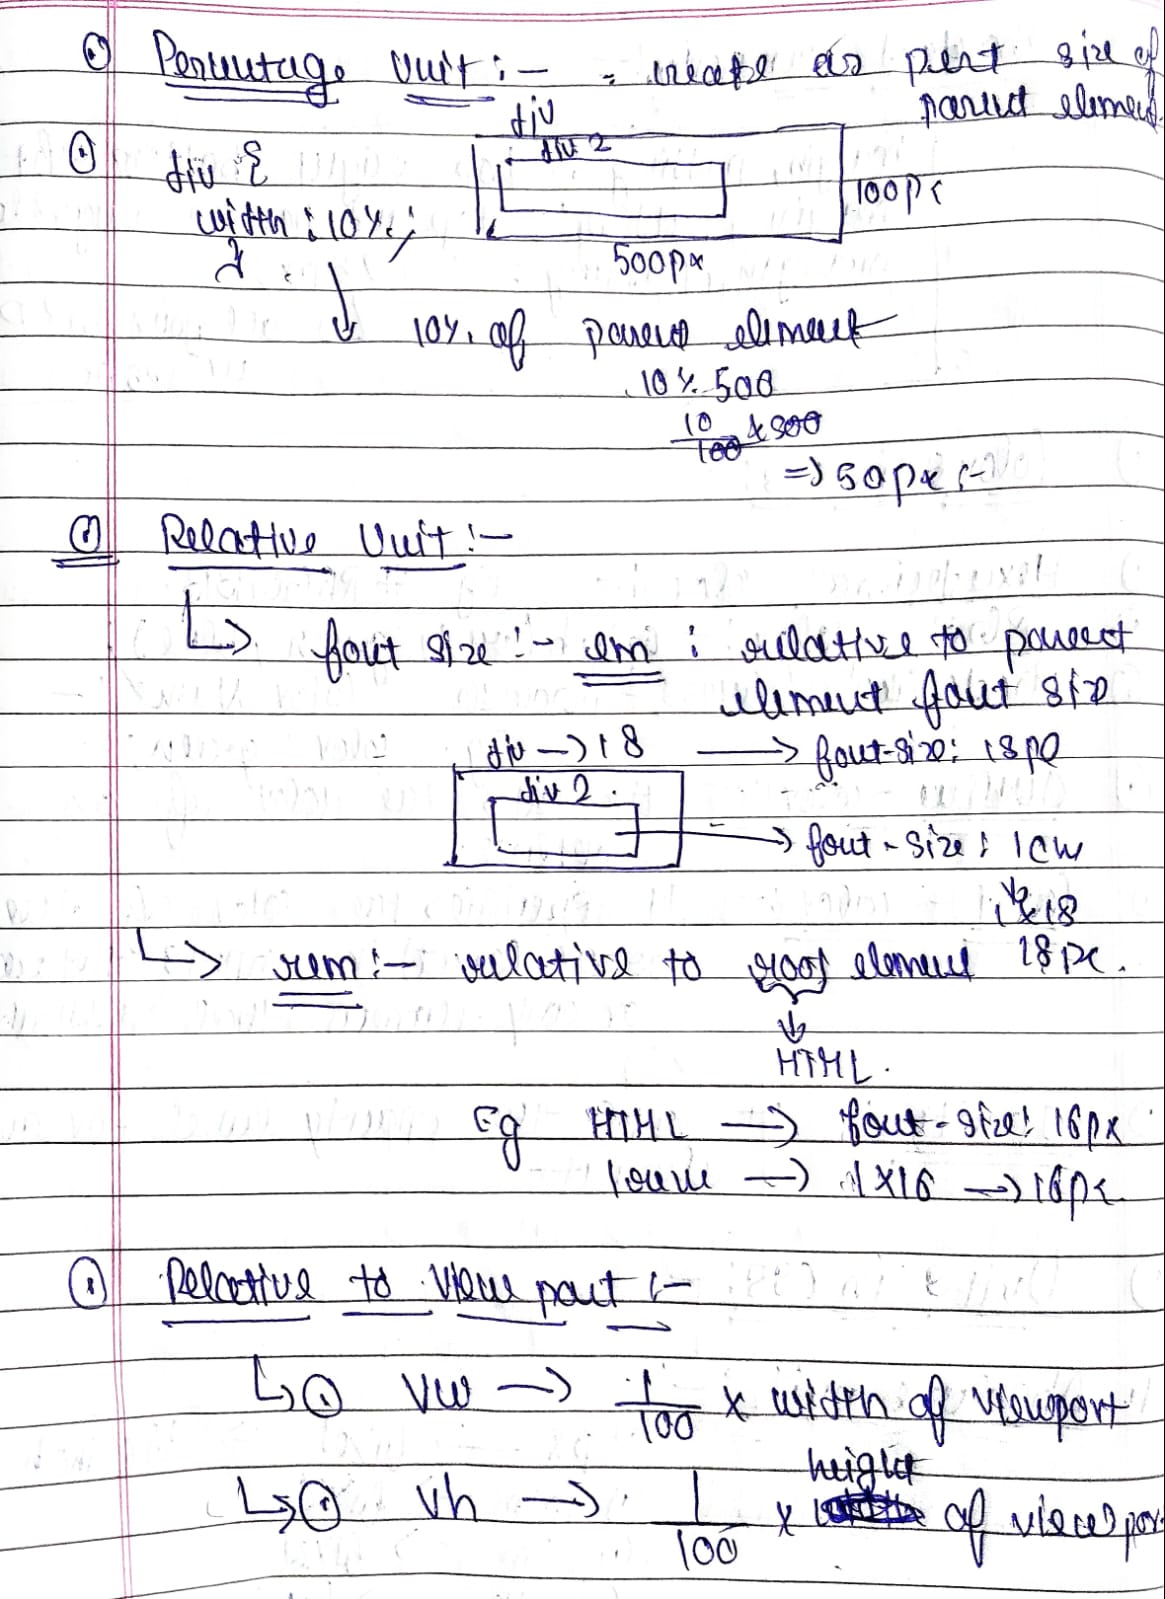 Percentage Unit :- = create as per size of
parent element.
div {
width : 10%;
}
div
div 2
100px
500px
10% of parent element
10% 500
10/100 x 500
=> 50px :-
Relative Unit :-
font size :- em : relative to parent
element font size
div -> 18 -> font-size: 18px
div 2
-> font-size : 1em
1 x 18
18px.
rem :- relative to root element
HTML.
Eg HTML -> font-size: 16px
1rem -> 1x16 -> 16px.
Relative to view port :-
vw -> 1/100 x width of viewport
vh -> 1/100 x height of viewpor